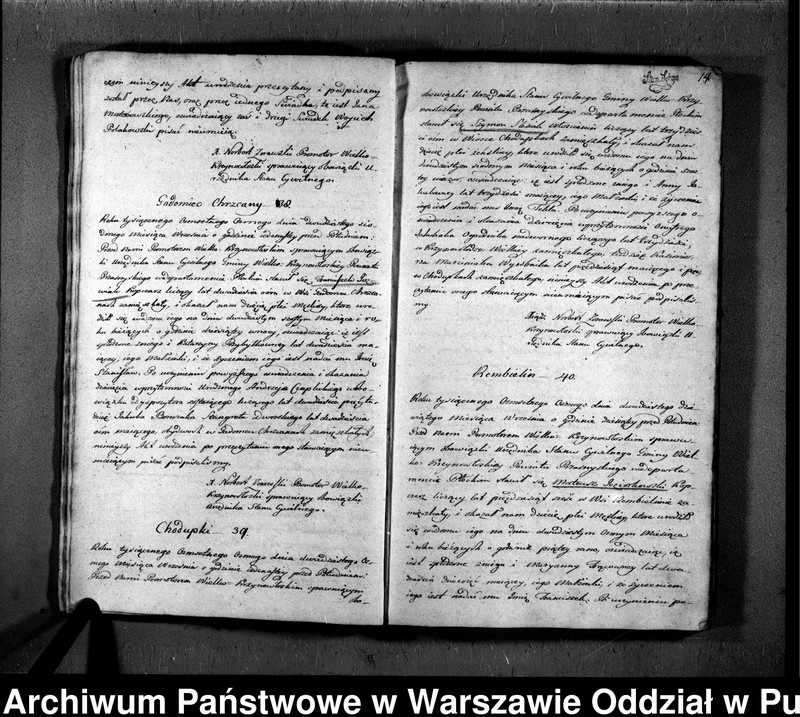 czem niniejszy Akt urodzenia przeczytany i podpisany
został przez Nas, oraz przez jednego Świadka, to jest Jana
zaś i drugi Świadek Wojciech
pisać nieumieją.
X. Norbert Promotor Wielko-
Krzynowłoski sprawujący obowiązki U-
rzędnika Stanu Cywilnego.
Gadomiec Chrzcany 38.
Roku tysiącznego Osmsetnego Osmego dnia dwudziestego sió-
dmego Miesiąca Września o godzinie jedenastej przed Południem.
Przed Nami Promotorem Wielko Krzynowłoskim sprawującym obowiąz-
ki Urzędnika Stanu Cywilnego Gminy Wielko-Krzynowłoskiej Powiatu
Przasnyskiego w departamencie Płockim stawił się
liczący lat dwadzieścia ośm w Wsi Gadomcu Chrzca-
nach zamieszkały, i okazał nam dziecię płci męskiej, które uro-
dziło się w domu jego na dniu dwudziestym szóstym Miesiąca i ro-
ku bieżących o godzinie dziewiątej z rana, oświadczając iż jest
spłodzone z niego i Katarzyny lat dwadzieścia ma-
jącej, jego Małżonki, i że życzeniem jego jest nadać mu Imię
Stanisław. Po uczynieniu powyższego oświadczenia i okazaniu
dziecięcia w przytomności Urodzonego Andrzeja
liczącego lat dwadzieścia
Jakuba lat dwadzieścia
ośm mającego, obydwóch w Gadomcu Chrzcanach zamieszkałych,
niniejszy Akt urodzenia po przeczytaniu onego stawającym nieu-
miejącym pisać podpisaliśmy.
X. Norbert Promotor Wielko-
Krzynowłoski sprawujący obowiązki
Urzędnika Stanu Cywilnego.
Chodupki 39.
Roku tysiącznego Osmsetnego Osmego dnia dwudziestego Os-
mego Miesiąca Września o godzinie jedenastej przed Południem.
Przed Nami Promotorem Wielko-Krzynowłoskim sprawującym
obo-
14
obowiązki Urzędnika Stanu Cywilnego Gminy Wielko-Krzy-
nowłoskiej Powiatu Przasnyskiego w departamencie Płockim
stawił się Szymon liczący lat trzydzieści
ośm w Wiosce Chodupkach zamieszkały, i okazał nam
dziecię płci żeńskiej, które urodziło się w domu jego na dniu
dwudziestym siódmym Miesiąca i roku bieżących o godzinie szós-
tej wieczór, oświadczając iż jest spłodzone z niego i Anny
lat trzydzieści mającej, jego Małżonki, i że życzeniem
jego jest nadać mu Imię Tekla. Po uczynieniu powyższego o-
świadczenia i okazaniu dziecięcia w przytomności Onufrego
liczącego lat trzydzieści,
w Krzynowłodze Wielkiej zamieszkałego, tudzież
Marcinka lat pięćdziesiąt mającego i
w Chodupkach zamieszkałego, niniejszy Akt urodzenia po prze-
czytaniu onego stawającym nieumiejącym pisać podpisaliś-
my.
Xiądz Norbert Promotor Wielko-
Krzynowłoski sprawujący obowiązki U-
rzędnika Stanu Cywilnego.
Rembielin 40.
Roku tysiącznego Osmsetnego Osmego dnia dwudziestego dzie-
wiątego Miesiąca Września o godzinie dziesiątej przed Południem
Przed Nami Promotorem Wielko-Krzynowłoskim sprawu-
jącym obowiązki Urzędnika Stanu Cywilnego Gminy Wiel-
ko-Krzynowłoskiej Powiatu Przasnyskiego w departa-
mencie Płockim stawił się Mateusz
liczący lat pięćdziesiąt sześć w Wsi Rembielinie za-
mieszkały, i okazał nam dziecię płci męskiej, które urodziło
się w domu jego na dniu dwudziestym Osmym Miesiąca
i roku bieżących o godzinie piątej rano, oświadczając, iż
jest spłodzone z niego i Maryanny lat dwa-
dzieścia dziewięć mającej, jego Małżonki, i że życzeniem
jego jest nadać mu Imię Franciszek. Po uczynieniu po-
Archiwum Państwowe w Warszawie Oddział w Pu